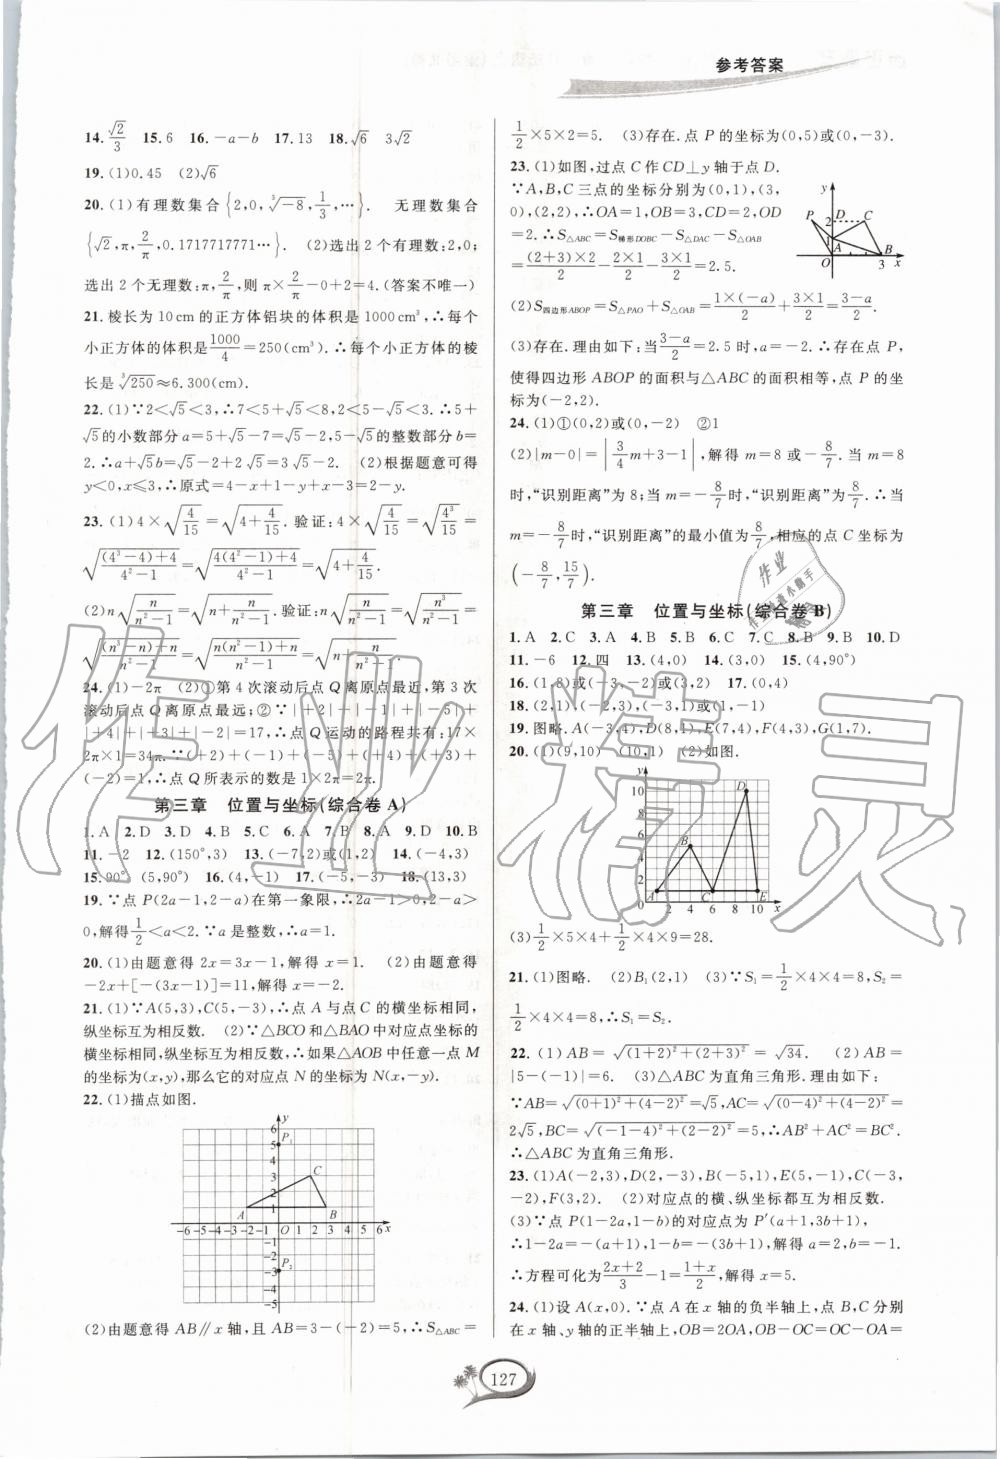 参考答案
14. √2/3 15. 6 16. -a-b 17. 13 18. √6 3√2
19. (1)0.45 (2)√6
20. (1)有理数集合{2,0,∛-8,1/3,…}. 无理数集合
{√2,π,2/π,0.1717717771…}. (2)选出2个有理数:2,0;
选出2个无理数:π,2/π,则π×2/π-0+2=4.(答案不唯一)
21. 棱长为10 cm的正方体铝块的体积是1000 cm³,∴每个
小正方体的体积是1000/4=250(cm³).∴每个小正方体的棱
长是∛250≈6.300(cm).
22. (1)∵2<√5<3,∴7<5+√5<8,2<5-√5<3.∴5+
√5的小数部分a=5+√5-7=√5-2,5-√5的整数部分b=
2.∴a+√5b=√5-2+2√5=3√5-2. (2)根据题意可得
y<0,x≤3,∴原式=4-x+1-y+x-3=2-y.
23. (1)4×√(4/15)=√(4+4/15). 验证:4×√(4/15)=√(4³/15)=
√(((4³-4)+4)/(4²-1))=√((4(4²-1)+4)/(4²-1))=√(4+4/15).
(2)n√(n/(n²-1))=√(n+n/(n²-1)). 验证:n√(n/(n²-1))=√(n³/(n²-1))=
√(((n³-n)+n)/(n²-1))=√((n(n²-1)+n)/(n²-1))=√(n+n/(n²-1)).
24. (1)-2π (2)①第4次滚动后点Q离原点最近,第3次
滚动后点Q离原点最远;②∵|+2|+|-1|+|-5|+
|+4|+|+3|+|-2|=17,∴点Q运动的路程共有:17×
2π×1=34π.∵(+2)+(-1)+(-5)+(+4)+(+3)+
(-2)=1,∴点Q所表示的数是1×2π=2π.
第三章 位置与坐标(综合卷A)
1. A 2. D 3. D 4. B 5. C 6. A 7. B 8. A 9. D 10. B
11. -2 12. (150°,3) 13. (-7,2)或(1,2) 14. (-4,3)
15. 90° (5,90°) 16. (4,-1) 17. (-5,-3) 18. (13,3)
19. ∵点P(2a-1,2-a)在第一象限,∴2a-1>0,2-a>
0,解得1/2<a<2.∵a是整数,∴a=1.
20. (1)由题意得2x=3x-1,解得x=1. (2)由题意得
-2x+[-(3x-1)]=11,解得x=-2.
21. (1)∵A(5,3),C(5,-3),∴点A与点C的横坐标相同,
纵坐标互为相反数. (2)∵△BCO和△BAO中对应点坐标的
横坐标相同,纵坐标互为相反数,∴如果△AOB中任意一点M
的坐标为(x,y),那么它的对应点N的坐标为N(x,-y).
22. (1)描点如图.
y
6
5
4
3
2
1
P₁
C
A
B
-6 -5 -4 -3 -2 -1 O 1 2 3 4 5 6 x
-1
-2
-3
-4
-5
P₂
(2)由题意得AB∥x轴,且AB=3-(-2)=5,∴S△ABC=
1/2×5×2=5. (3)存在.点P的坐标为(0,5)或(0,-3).
23. (1)如图,过点C作CD⊥y轴于点D.
∵A,B,C三点的坐标分别为(0,1),(3,
0),(2,2),∴OA=1,OB=3,CD=2,OD
=2.∴S△ABC=S梯形DOBC-S△DAC-S△OAB
=(2+3)×2/2-2×1/2-3×1/2=2.5.
y
P
2
D
C
1
A
O
B
3
x
(2)S四边形ABOP=S△PAO+S△OAB=1×(-a)/2+3×1/2=(3-a)/2.
(3)存在.理由如下:当(3-a)/2=2.5时,a=-2.∴存在点P,
使得四边形ABOP的面积与△ABC的面积相等,点P的坐
标为(-2,2).
24. (1)①(0,2)或(0,-2) ②1
(2)|m-0|=|3/4m+3-1|,解得m=8或-8/7.当m=8
时,“识别距离”为8;当m=-8/7时,“识别距离”为8/7.∴当
m=-8/7时,“识别距离”的最小值为8/7,相应的点C坐标为
(-8/7,15/7).
第三章 位置与坐标(综合卷B)
1. A 2. C 3. A 4. B 5. B 6. C 7. C 8. B 9. B 10. D
11. -6 12. 四 13. (4,0) 14. (3,0) 15. (4,90°)
16. (1,8)或(-3,-2)或(3,2) 17. (0,4)
18. (2,1)(-2,3),(-3,1)或(1,-1)
19. 图略. A(-3,4),D(8,1),E(7,4),F(4,3),G(1,7).
20. (1)(9,10) (10,1) (2)如图.
y
10
8
6
4
2
0
D
B
A
C
E
2 4 6 8 10 x
(3)1/2×5×4+1/2×4×9=28.
21. (1)图略. (2)B₁(2,1) (3)∵S₁=1/2×4×4=8,S₂=
1/2×4×4=8,∴S₁=S₂.
22. (1)AB=√((1+2)²+(2+3)²)=√34. (2)AB=
|5-(-1)|=6. (3)△ABC为直角三角形.理由如下:
∵AB=√((0+1)²+(4-2)²)=√5,AC=√((0-4)²+(4-2)²)=
2√5,BC=√((-1-4)²+(2-2)²)=5,∴AB²+AC²=BC².
∴△ABC为直角三角形.
23. (1)A(-2,3),D(2,-3),B(-5,1),E(5,-1),C(-3,
-2),F(3,2). (2)对应点的横、纵坐标都互为相反数.
(3)∵点P(1-2a,1-b)的对应点为P′(a+1,3b+1),
∴1-2a=-(a+1),1-b=-(3b+1),解得a=2,b=-1.
∴方程可化为(2x+2)/3-1=(1+x)/2,解得x=5.
24. (1)设A(x,0).∵点A在x轴的负半轴上,点B,C分别
在x轴、y轴的正半轴上,OB=2OA,OB-OC=OC-OA=
127
作业精灵
作业